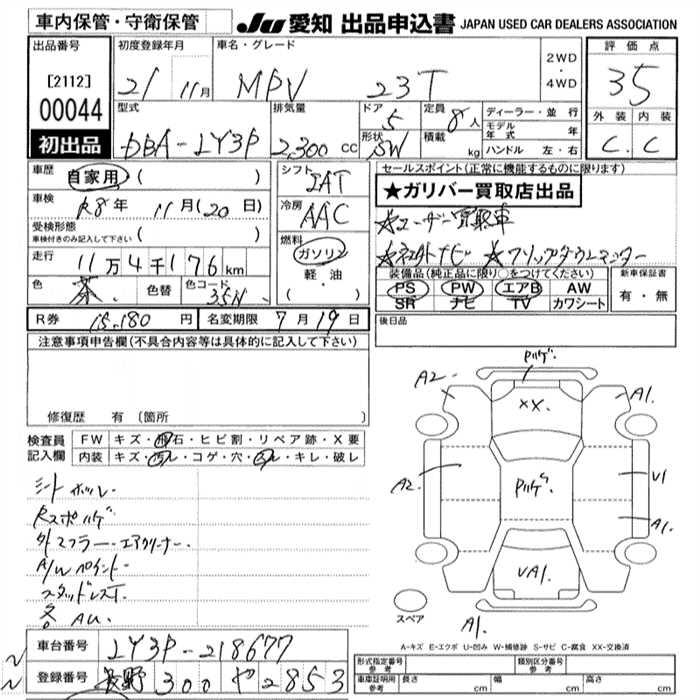 車内保管・守衛保管
JU 愛知 出品申込書 JAPAN USED CAR DEALERS ASSOCIATION
出品番号
[2112]
00044
初出品
初度登録年月
21 11月
車名・グレード
MPV 23T
2WD
・
4WD
評価点
35
外装 内装
C. C
型式
DBA-LY3P
排気量
2,300 cc
ドア
5
形状
SW
定員
8人
積載
kg
ディーラー・並行
モデル年式 年
ハンドル 左・右
車歴
自家用 ( )
車検
R8年 11月(20日)
受検形態
車検付きのみ記入して下さい ( )
走行
11万4千176km
色
茶
色替
色コード
35N
シフト
IAT
冷房
AAC
燃料
ガソリン
・
軽・油
・( )
セールスポイント(正常に機能するものに限ります)
★ガリバー買取店出品
☆ユーザー買取車
☆社外ナビ ☆フリップダウンモニター
装備品(純正品に限り○をつけてください)
PS PW エアB AW
SR ナビ TV カワシート
新車保証書
有・無
R券 15,180円
名変期限 7月19日
後日品
注意事項申告欄(不具合内容等は具体的に記入して下さい)
修復歴 有 〔箇所
検査員記入欄
FW キズ・飛石・ヒビ割・リペア跡・X要
内装 キズ・汚レ・コゲ・穴・スレ・キレ・破レ
シートホツレ
Rスポハゲ
外マフラー・エアクリーナー
A/Wペイント
スタッドレスT
各AU
Pハゲ
A2
A1.
XX.
A2
Pハゲ
U1
A1.
UA1.
A1.
スペア
A-キズ E-エクボ U-凹み W-補修跡 S-サビ C-腐食 XX-交換済
車台番号 LY3P-218677
登録番号 長野 300 や 2853
形式指定番号
参考
類別区分番号
参考
車庫証明用
参考
長さ cm
幅 cm
高さ cm